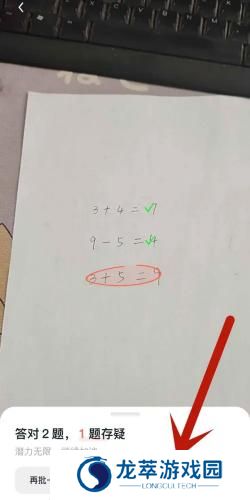 3+4=7
9-5=4
3+5=9
答对2题，1题存疑
潜力无限
再批一
龙萃游戏园
LONGCUITECH